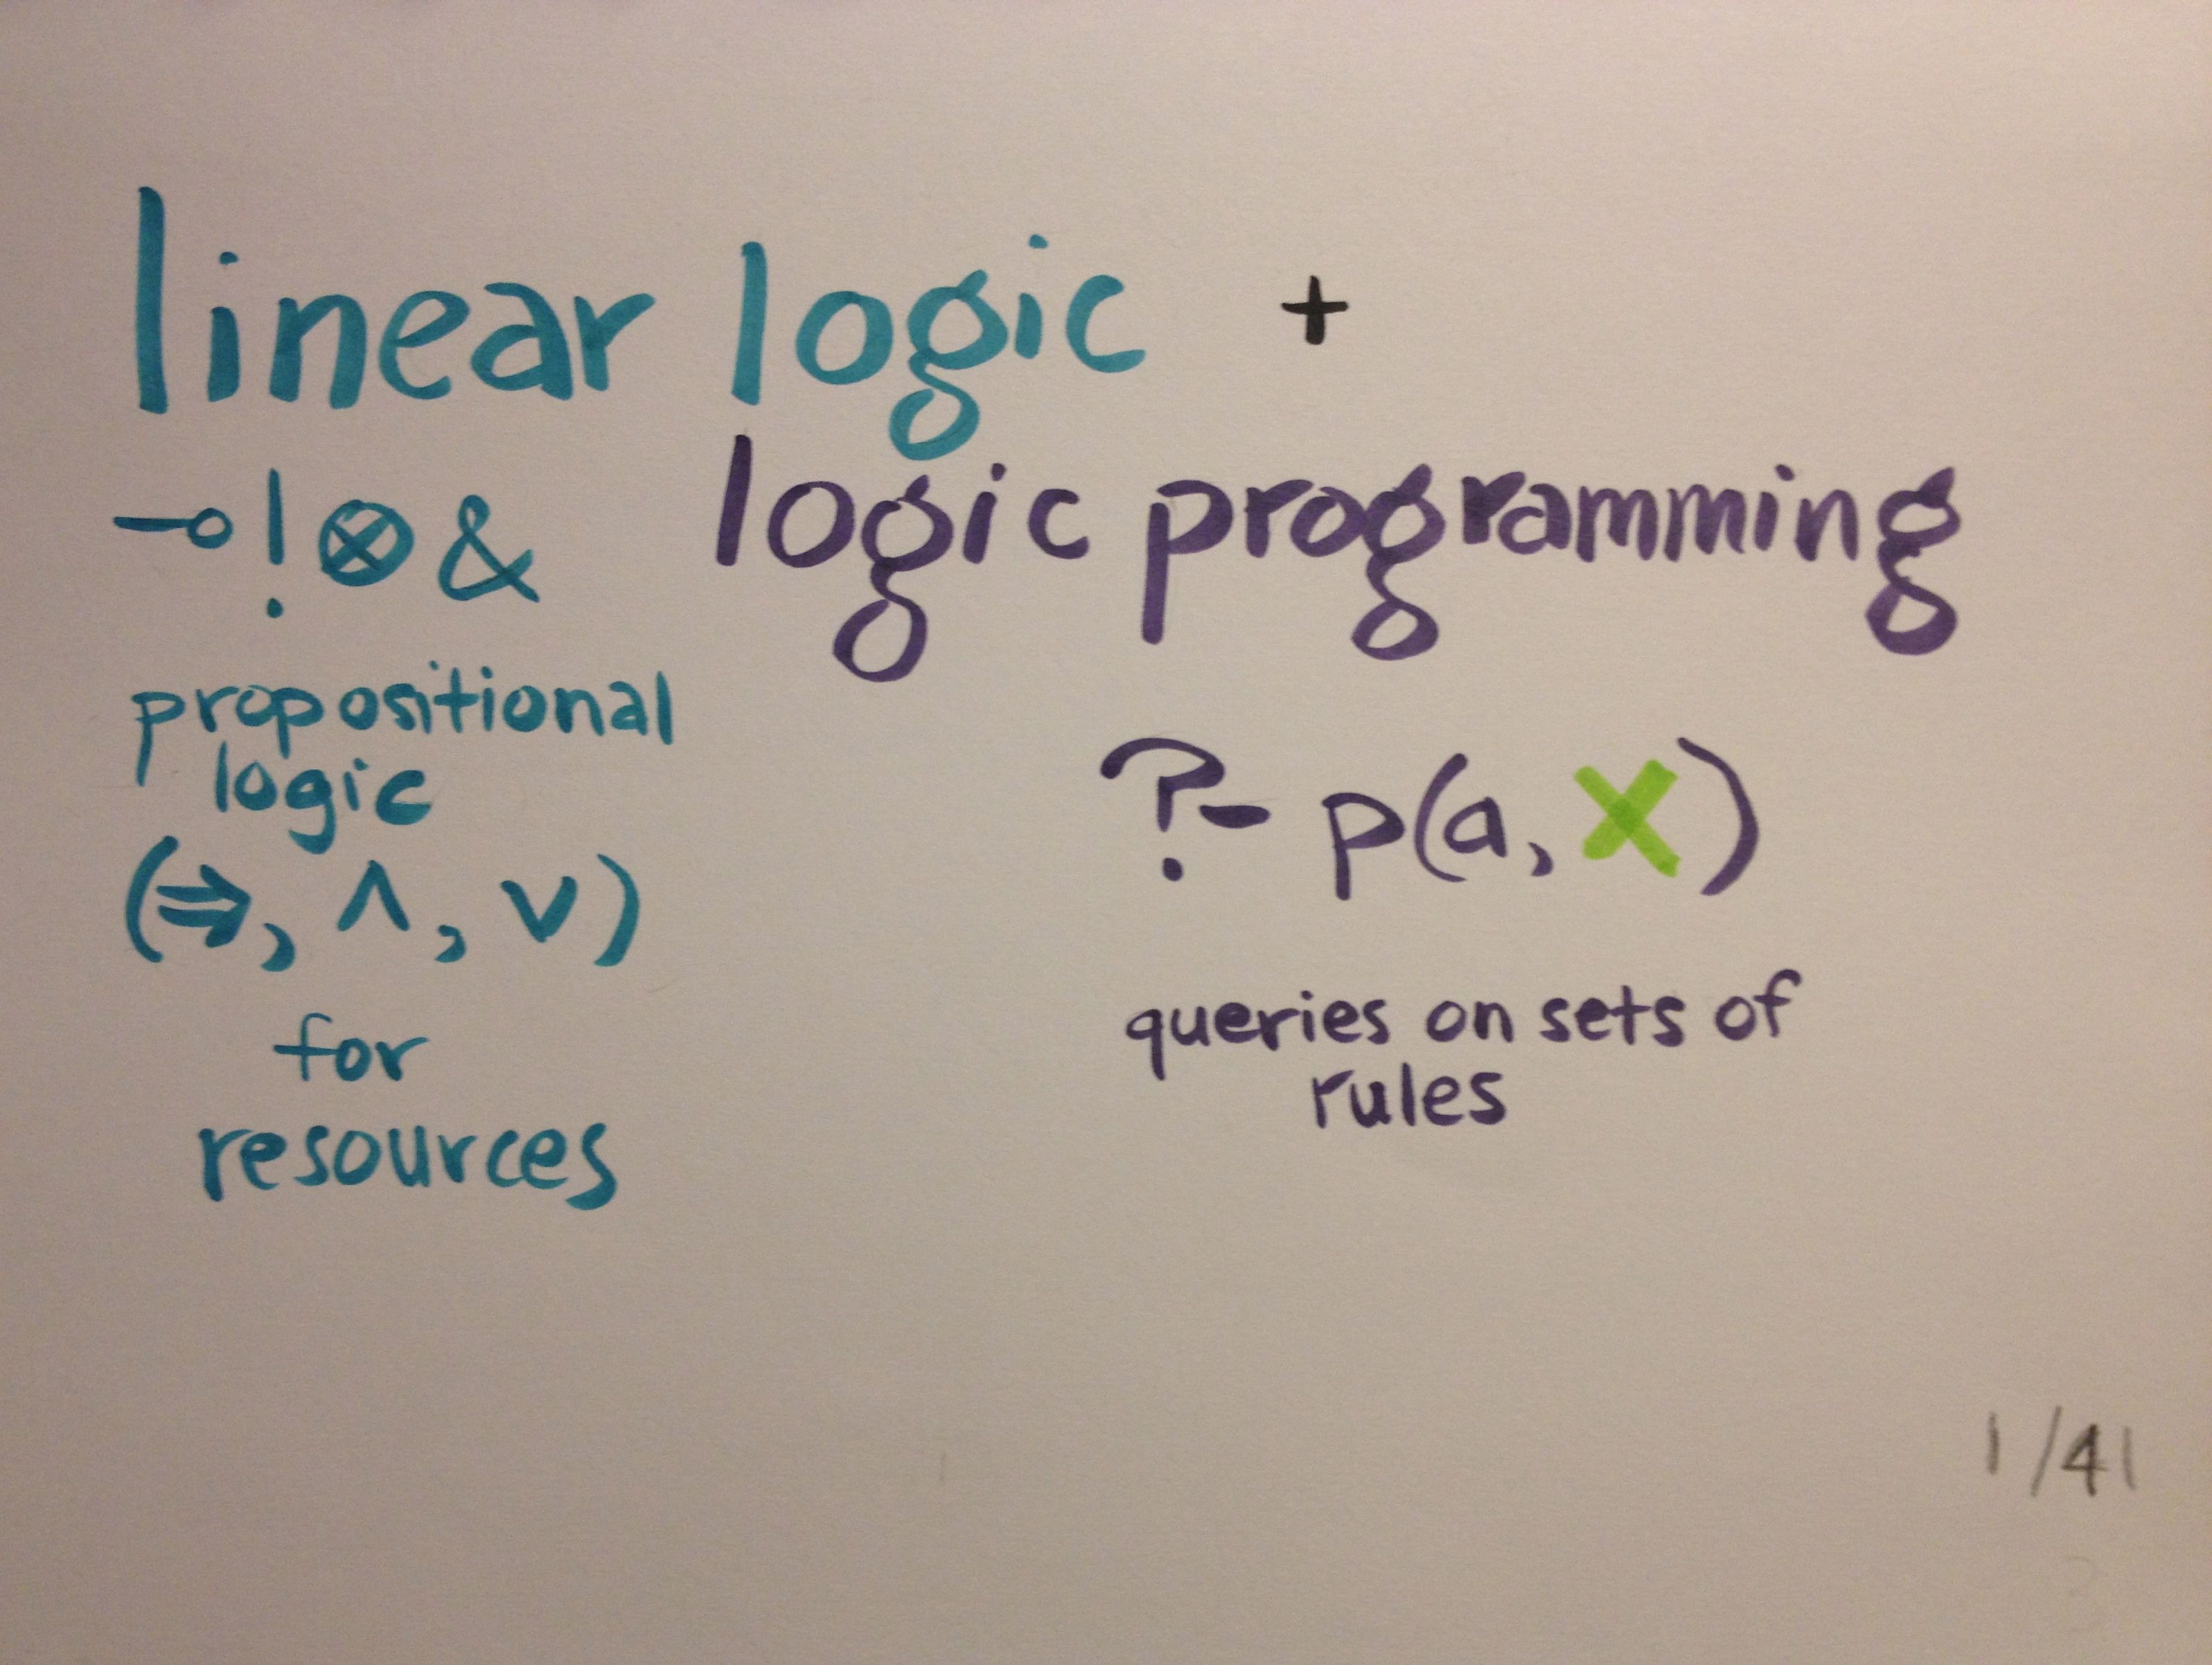 linear logic +
logic programming
⊸ ! ⊗ &
propositional
logic
(⇒, ∧, ∨)
for
resources
?- p(a, X)
queries on sets of
rules
1/41